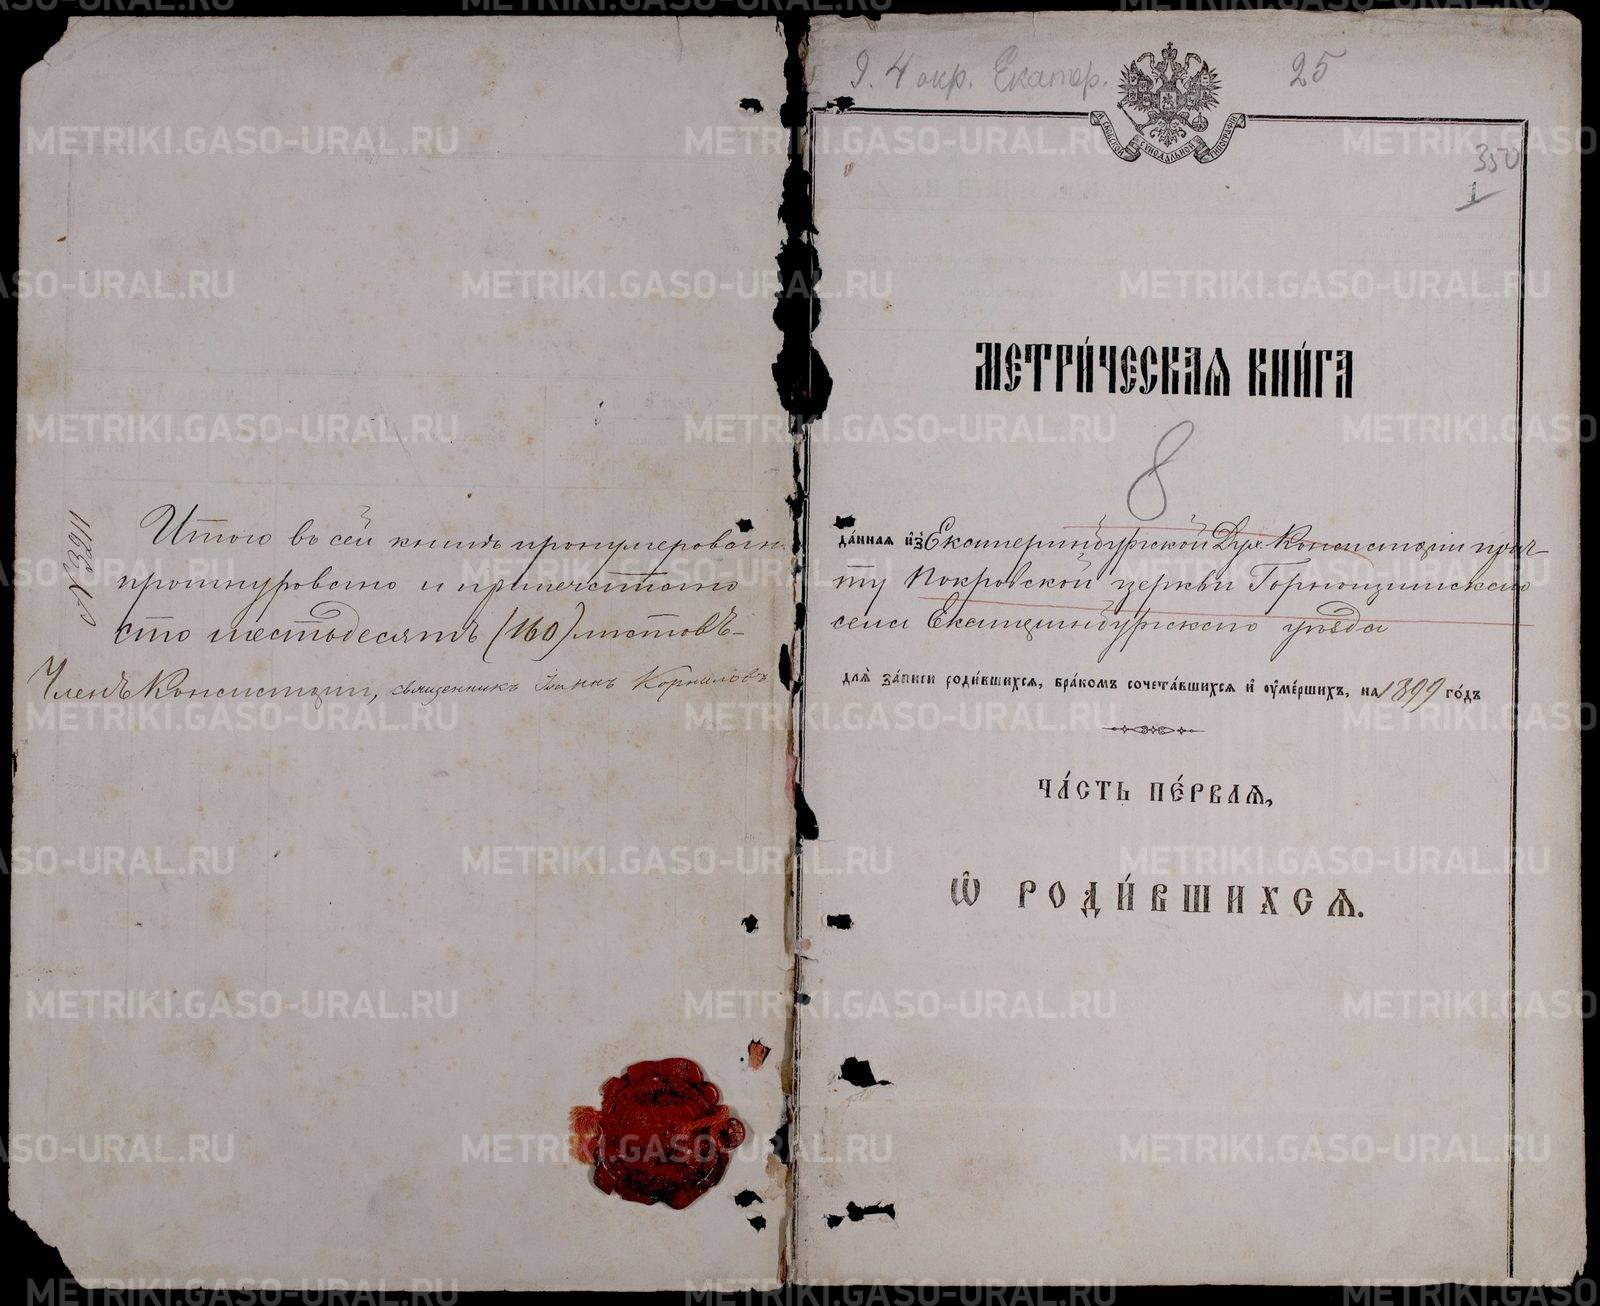 № 3211
Итого въ сей книгѣ пронумеровано
прошнуровано и припечатано
сто шестьдесятъ (160) листовъ-
Членъ Консисторіи, священникъ Іоаннъ Корниловъ
9. 4 окр. Екатер.
25
МОСКОВСКОЙ СѴНОДАЛЬНОЙ ТИПОГРАФІИ
350
1
МЕТРИ́ЧЕСКАѦ КНИ́ГА
8
да́ннаѧ и҆з̾ Екатеринбургской Дух. Консисторіи прич-
ту Покровской церкви Горнощитскаго
села Екатеринбургскаго уѣзда
длѧ̀ за́писи роди́вшихсѧ, бра́комъ сочета́вшихсѧ и҆ ᲂу҆ме́ршихъ, на 1899 го́дъ
ЧА́СТЬ ПЕ́РВАѦ,
Ѽ РОДИ́ВШИХСѦ.
METRIKI.GASO-URAL.RU